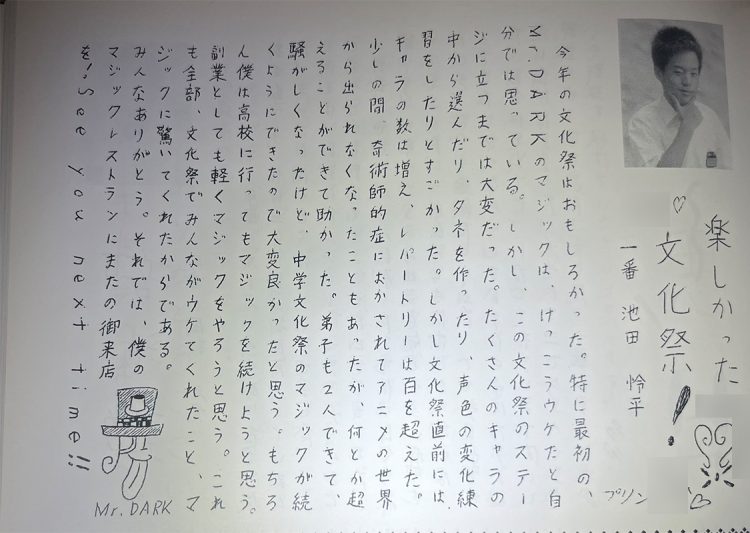 楽しかった
♡文化祭!
一番 池田 怜平
プリン
今年の文化祭はおもしろかった。特に最初の、
Mr.DARKのマジックは、けっこうウケたと自
分では思っている。しかし、この文化祭のステー
ジに立つまでは大変だった。たくさんのキャラの
中から選んだり、タネを作ったり、声色の変化練
習をしたりとすごかった。しかし文化祭直前には、
キャラの数は増え、レパートリーは百を超えた。
少しの間、奇術師的症におかされてアニメの世界
から出られなくなったこともあったが、何とか超
えることができて助かった。弟子も2人できて、
騒がしくなったけど、中学文化祭のマジックが続
くようにできたので大変良かったと思う。もちろ
ん僕は高校に行ってもマジックを続けようと思う。
副業としても軽くマジックをやろうと思う。これ
も全部、文化祭でみんながウケてくれたこと、マ
ジックに驚いてくれたからである。
みんなありがとう。それでは、僕の
マジックレストランにまたの御来店
を!See you next time!!
Mr.DARK